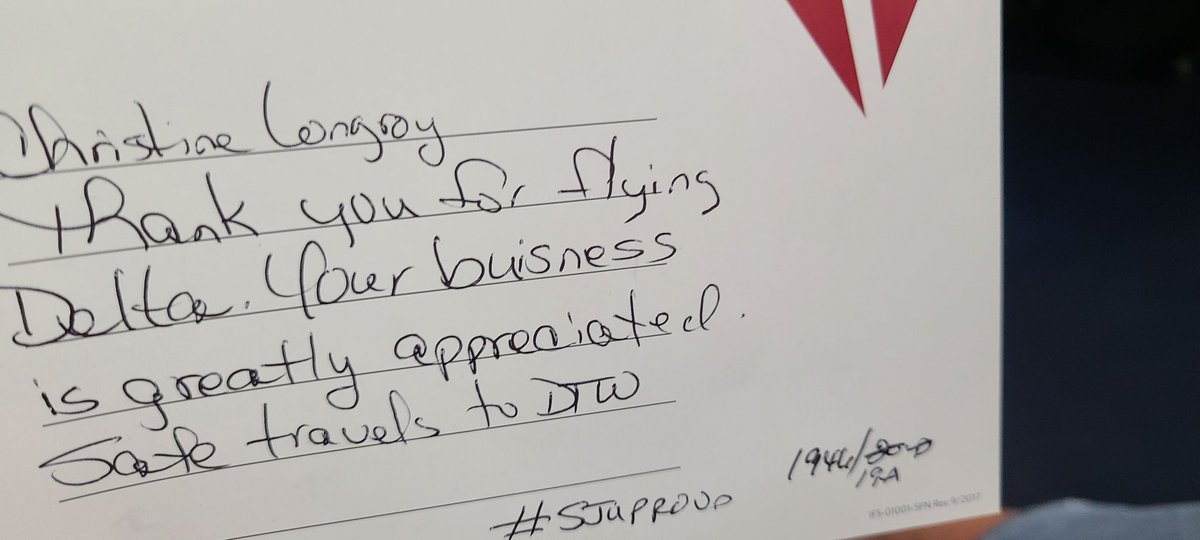 Christine Longroy
Thank you for flying
Delta. Your buisness
is greatly appreciated.
Safe travels to DTW
#SJUPROUD
19A
IFS-01001-SPN Rev 9/2017